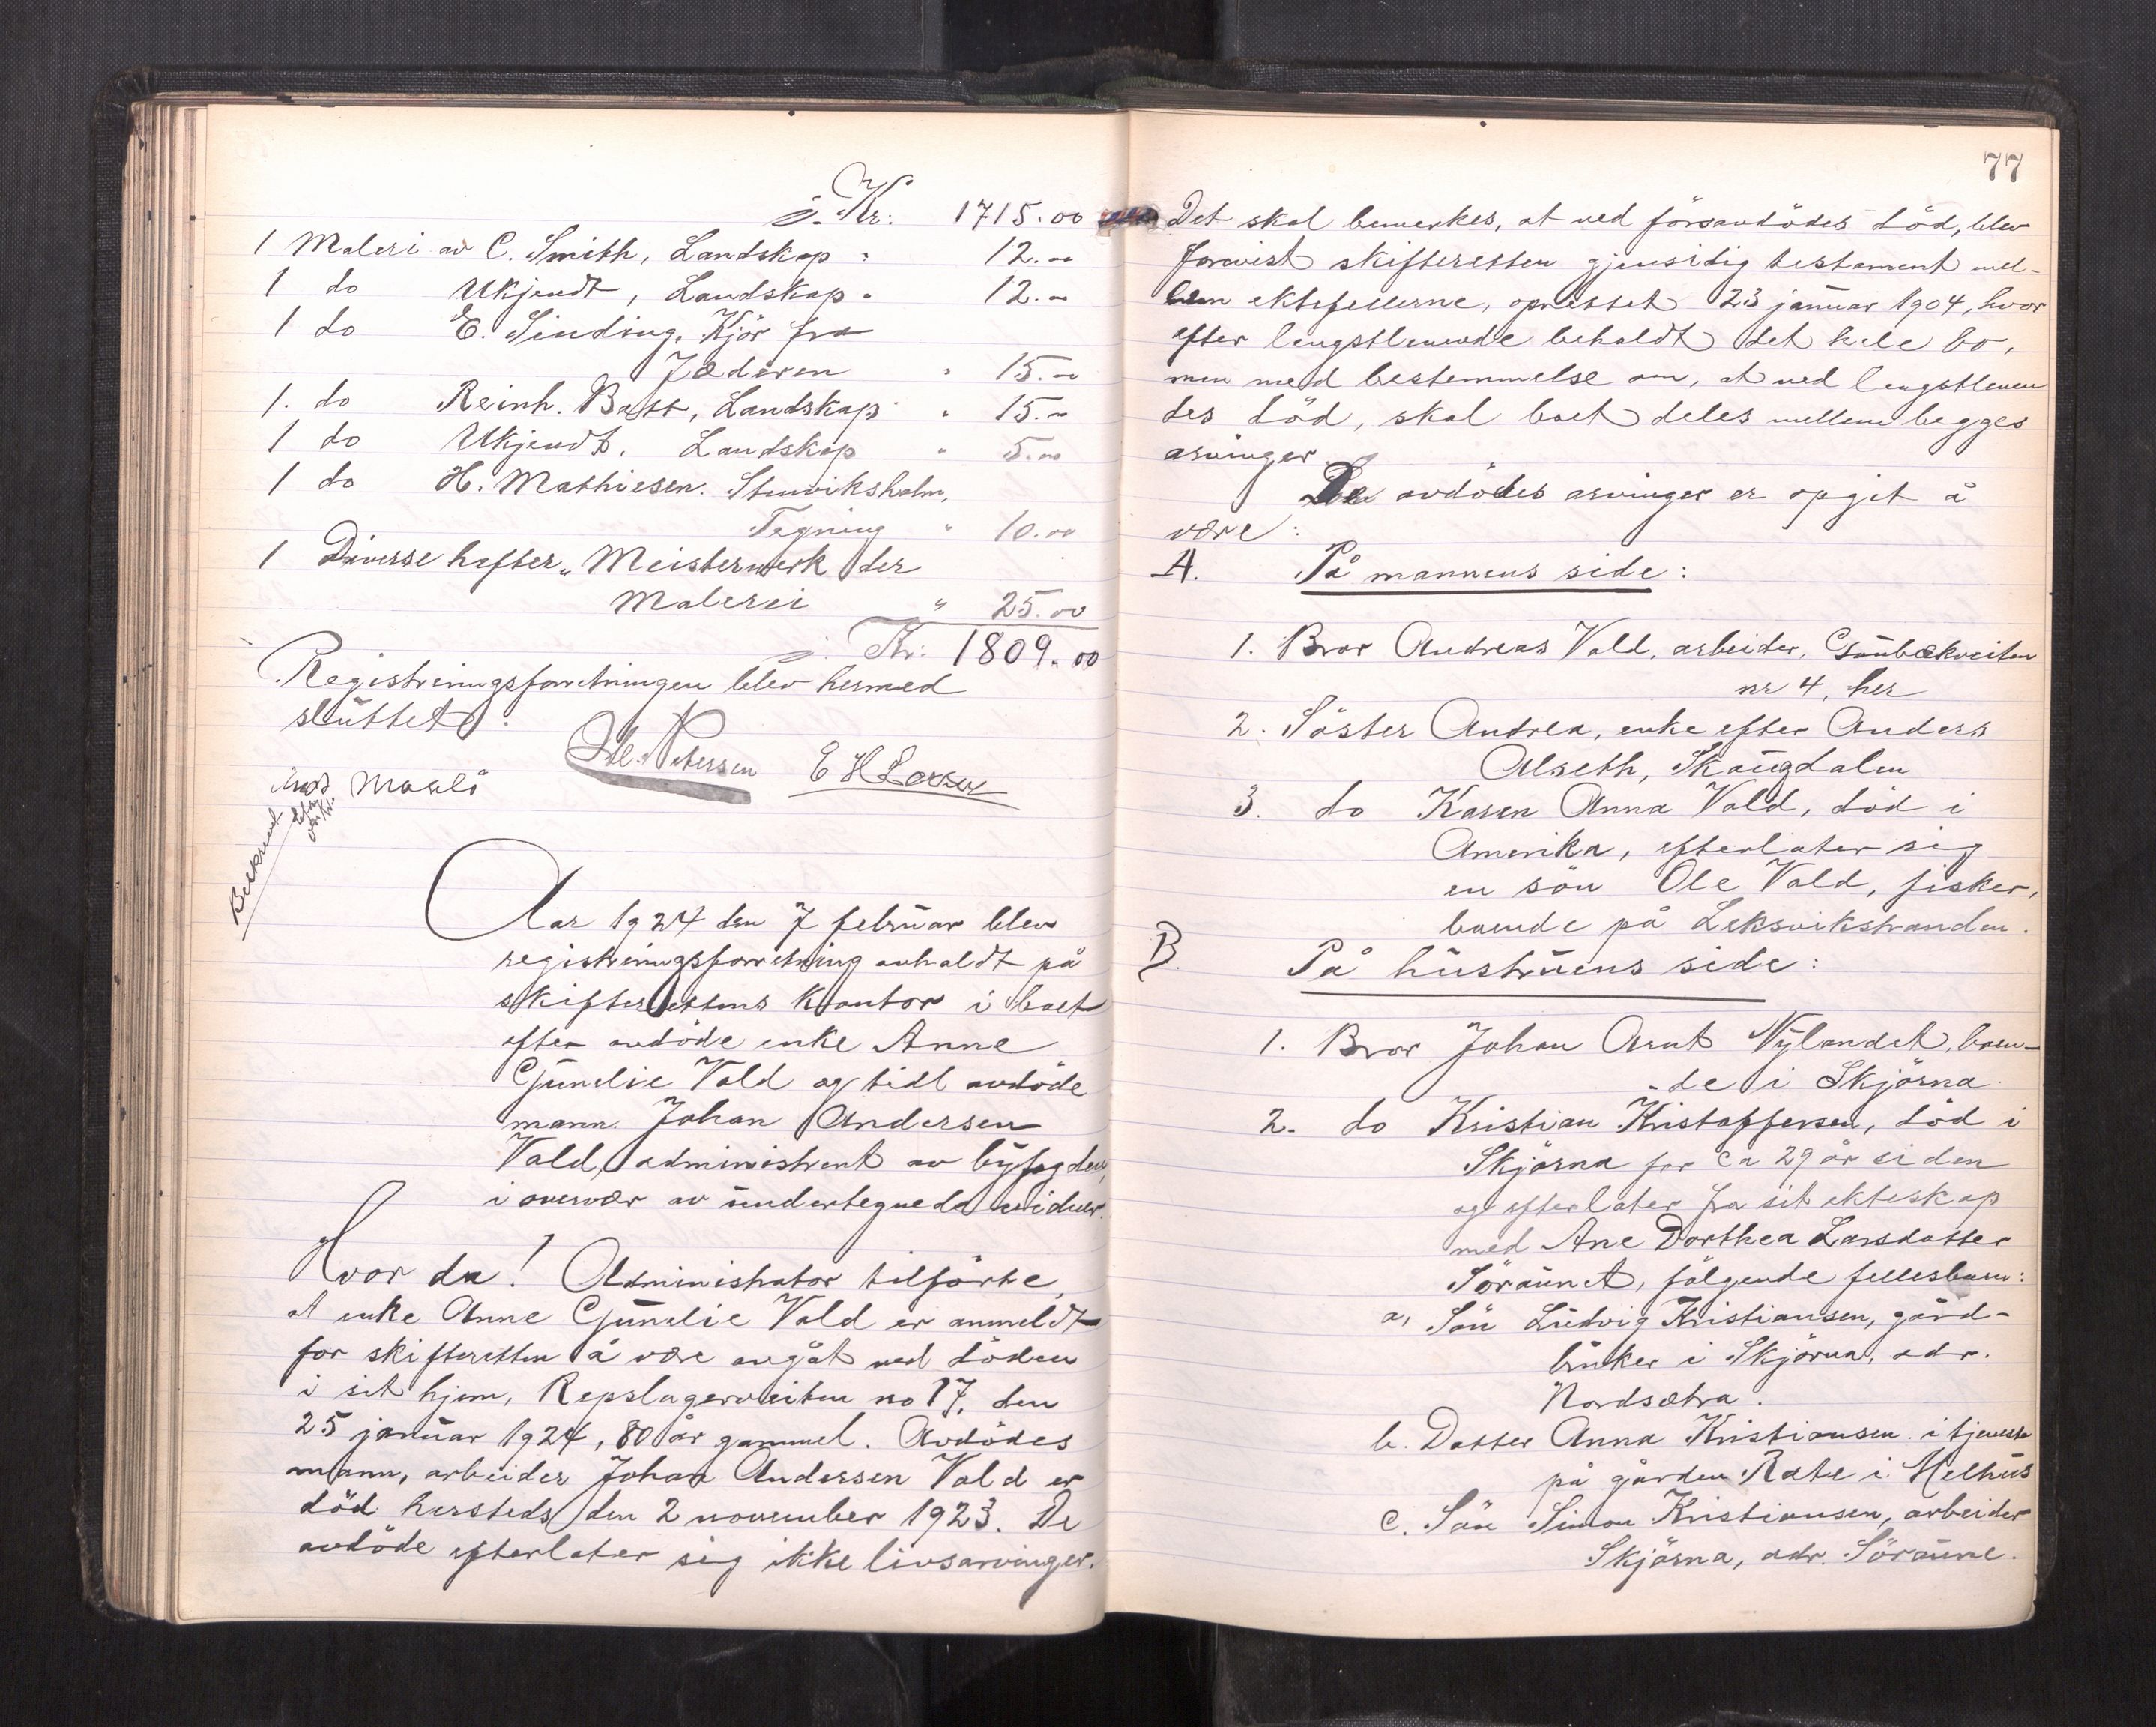 Kr. 1715.00
1 Maleri av C. Smith, Landskap " 12.-
1 do Ukjendt, Landskap " 12.-
1 do E. Sinding. Kjör fra
Jæderen " 15.-
1. do Reinh. Bass, Landskap " 15.-
1 do Ukjendt. Landskap " 5.00
1 do H. Mathiesen. Stenviksholm,
Tegning " 10.00
1 Diverse hefter „Meisterwerk der
Malerei " 25.00
Kr. 1809.00
Registreringsforretningen blev hermed
sluttet.
Petersen E H Larsen
Beskrevet
Aar 1924 den 7 februar blev
registreringsforretning avholdt på
skifterettens kontor i boet
efter avdöde enke Anne
Gunelie Vold og tidl avdöde
mann Johan Andersen
Vold, administrert av byfogden,
i overvær av undertegnede vidner.
Hvor da! Administrator tilförte,
at enke Anne Gunelie Vold er anmeldt
for skifteretten å være avgåt ved döden
i sit hjem, Repslagerveiten no 17, den
25 januar 1924, 80 år gammel. Avdödes
mann, arbeider Johan Andersen Vold er
död hersteds den 2 november 1923. De
avdöde efterlater sig ikke livsarvinger.
77
Det skal bemerkes, at ved förstavdödes död, blev
forevist skifteretten gjensidig testament mel-
lem ektefellerne, oprettet 23 januar 1904, hvor
efter lengstlevende beholdt det hele bo,
men med bestemmelse om, at ved lengstleven
des död, skal boet deles mellem begges
arvinger.
De avdödes arvinger er opgit å
være:
A. På mannens side:
1. Bror Andreas Vold, arbeider,
nr 4, her
2. Söster Andrea, enke efter Anders
Alseth, Skaugdalen
3. do Karen Anna Vold, död i
Amerika, efterlater sig
en sön Ole Vold, fisker,
boende på Leksvikstranden.
B. På hustruens side:
1. Bror Johan Arnt Nylandet, boen-
-de i Skjörna.
2. do Kristian Kristoffersen, död i
Skjörna for ca 29 år siden
og efterlater fra sit ekteskap
med Ane Dorthea Larsdatter
Söraunet, fölgende fellesbarn:
a, Sön Ludvig Kristiansen, gård-
bruker i Skjörna, adr.
Nordsætra.
b. Datter Anna Kristiansen i tjeneste
på gården Rate i Melhus
c. Sön Simon Kristiansen, arbeider
Skjörna, adr. Söraune.